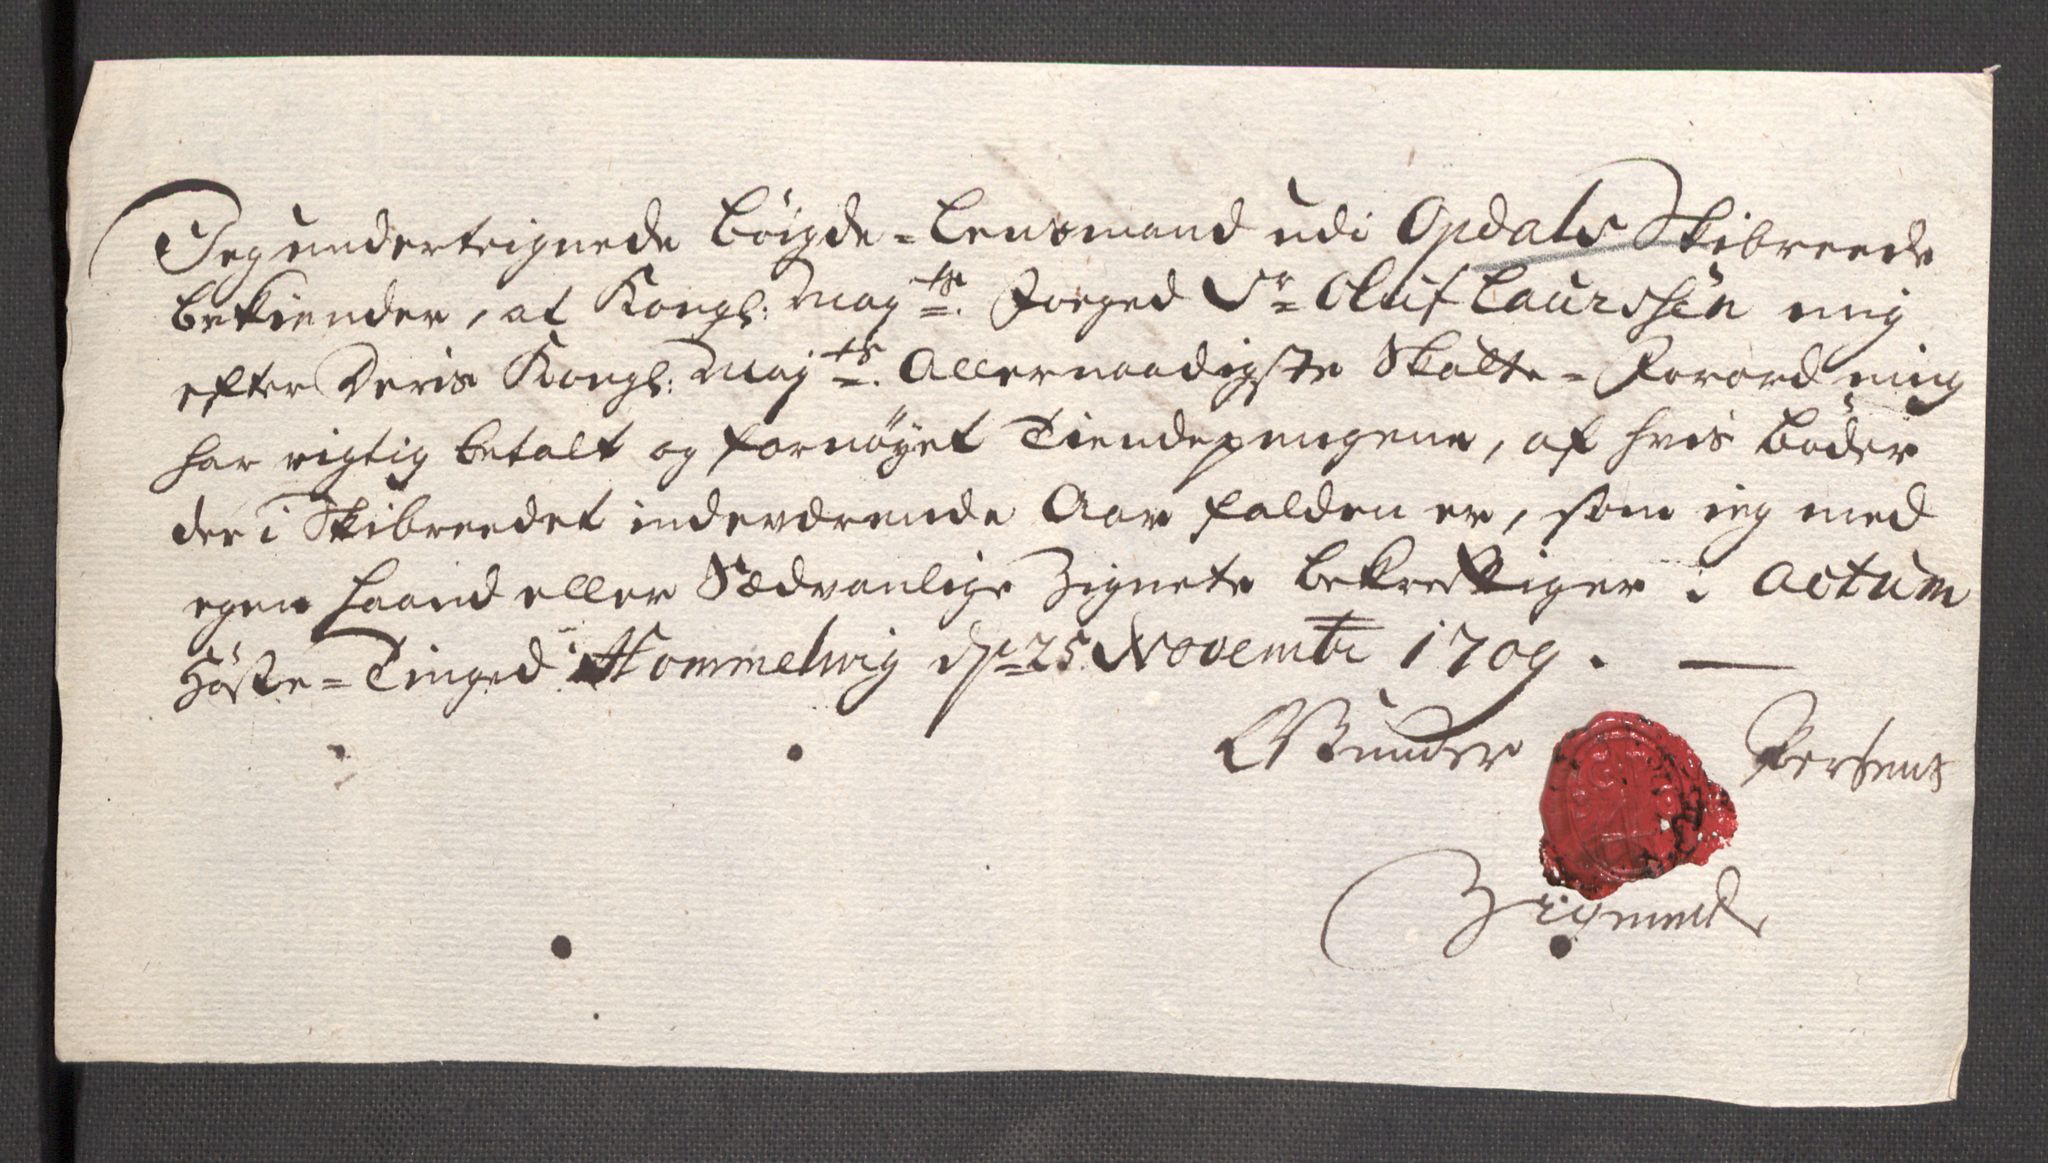 Jeg underteignede bøigde-Lensmand udi Opdals Skibreede
bekiender, at Kongl: May:ts Foeged Sr Oluf Laurssen mig
efter Deris Kongl: Maj:ts Allernaadigste Skatte-Forordning
har rigtig betalt og fornøyet Tiendepengene, af hvis bøder
der i Skibreedet indeværende Aar falden er, som jeg med
egen Haand eller Sædvanlige Zignete bekreftiger. Actum
Høste-Tinged i Hommelwig dn 25 Novembr 1709.
Gunder Persens
Zignet